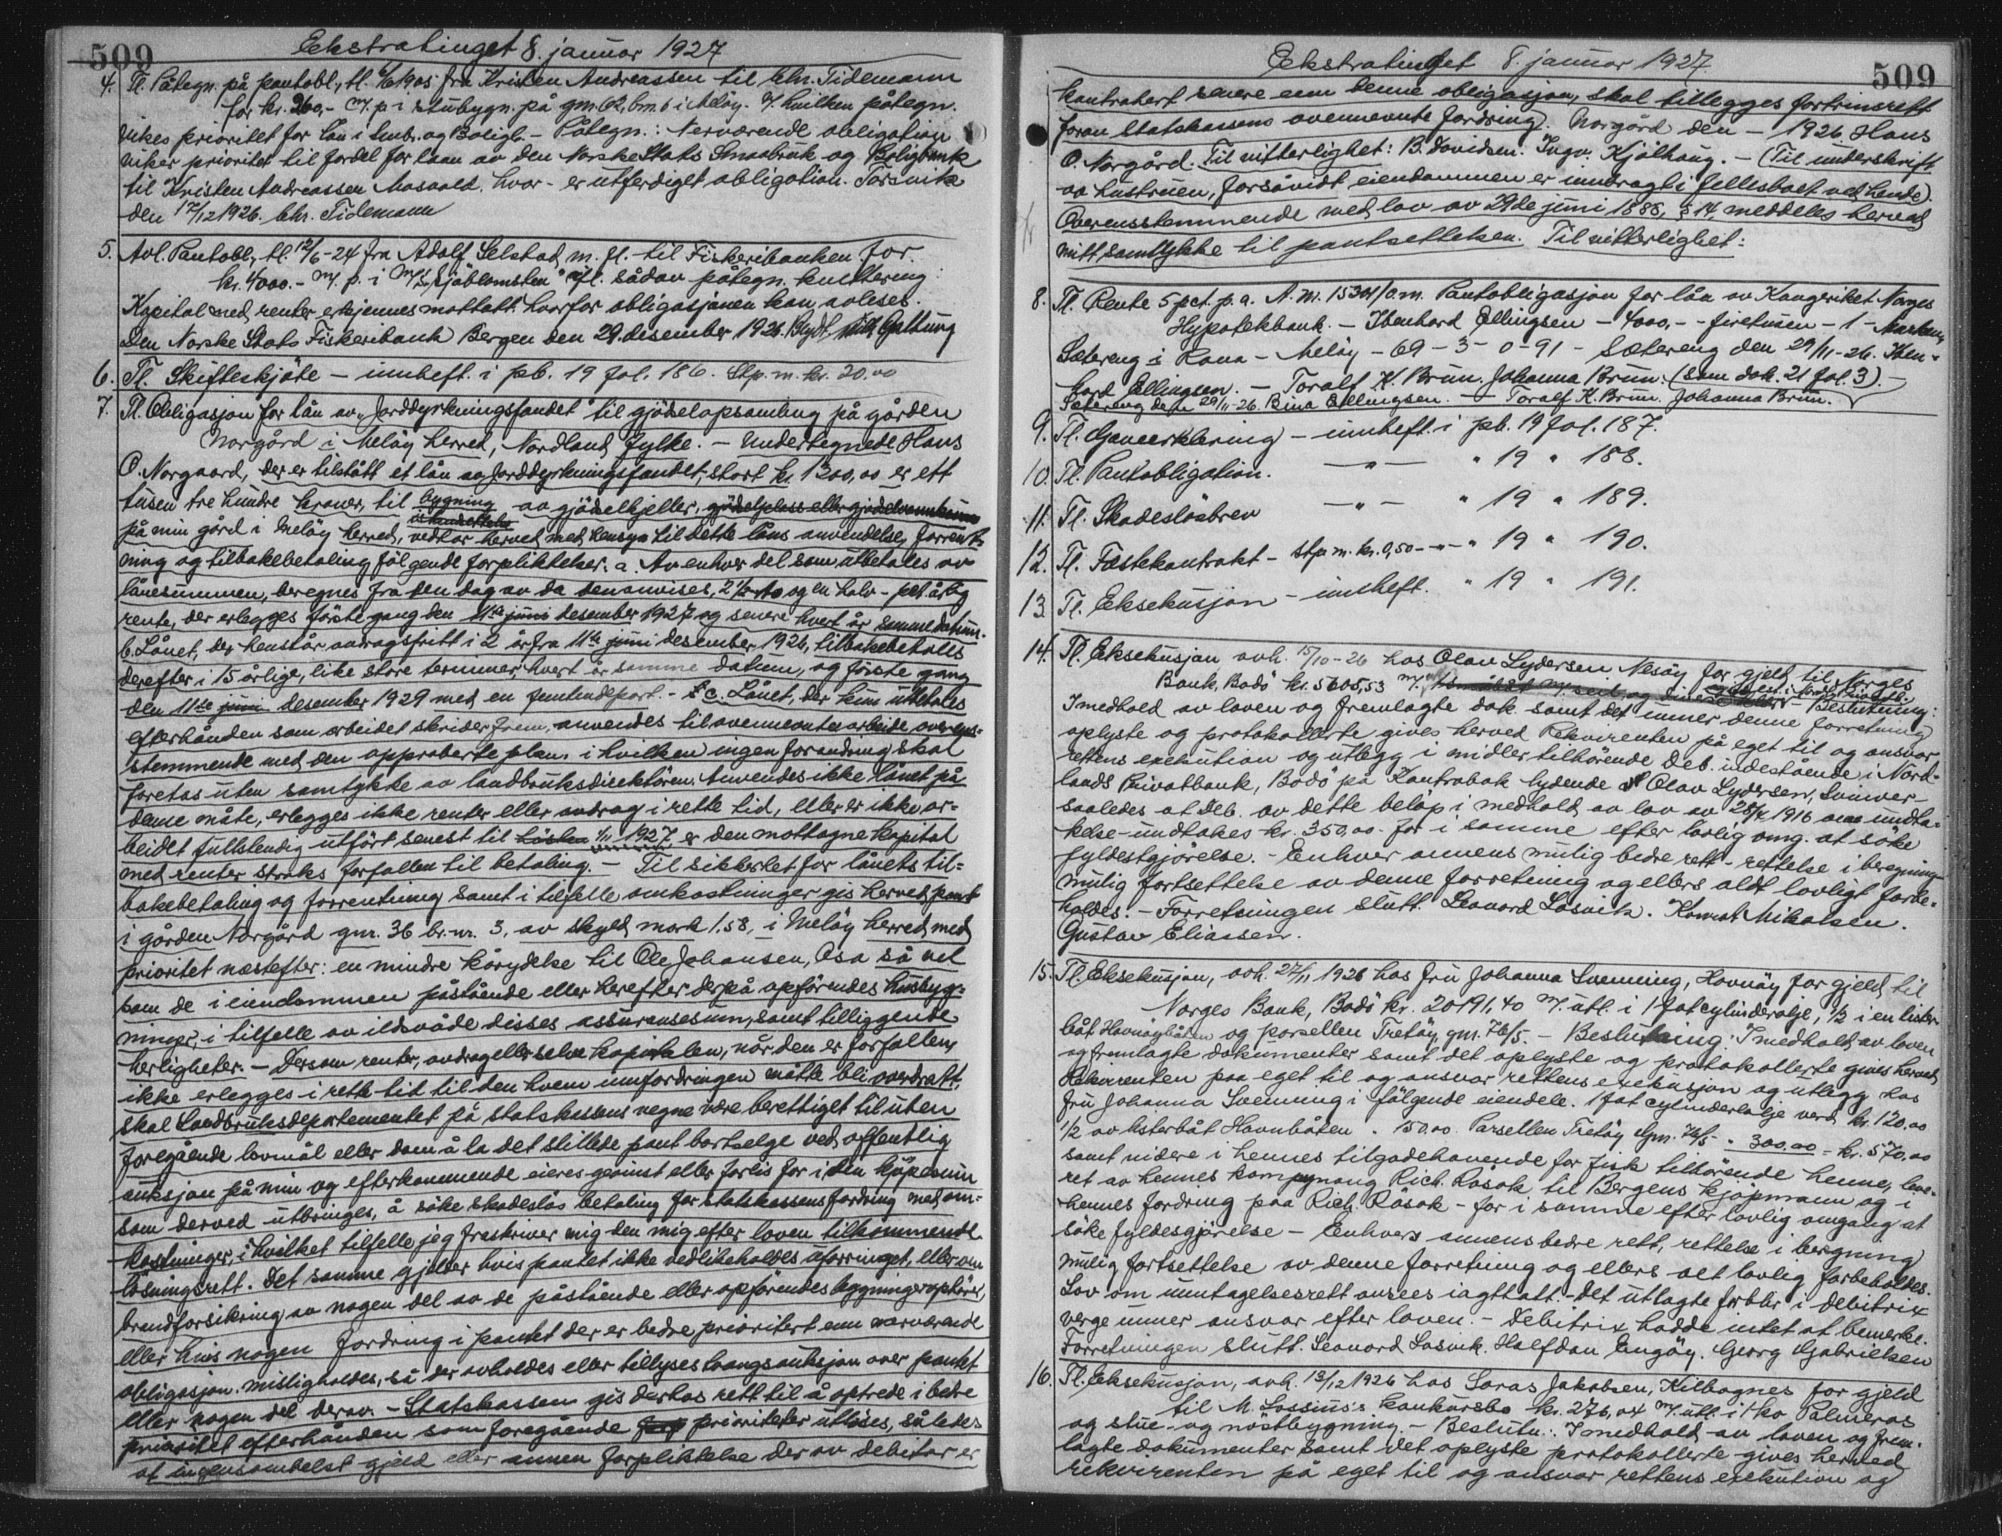 509
Ekstratinget 8. januar 1927
4. Tl. Påtegn. på pantobl. tl. fra Kristen Andreassen til Chr. Tidemann
for kr. 260,- m/ p. i stubygn. på gnr. 62, bnr. 6 i Meløy. m/ hvilken påtegn.
vikes prioritet for lån i Småb. og Boligb.- Påtegn.: Nerværende obligation
viker prioritet til fordel for laan av den Norske Stats Smaabruk og Boligbank
til Kristen Andreassen Mosvold, hvor- er utferdiget obligation. Torsvik
den 17/12 1926. Chr. Tidemann
5. Avl. Pantobl. tl. 12/6-24 fra Adolf Selstad m. fl. til Fiskeribanken for
kr. 4000.- m/ p. i m/s "Sjöblomsten" m/fl. sådan påtegn. kvittering:
Kapital med renter erkjennes mottatt hvorfor obligasjonen kan avleses.
Den Norske Stats Fiskeribank Bergen den 29. desember 1926. Gjeltung
6. Tl. Skifteskjöte - innheft. i pb. 19 fol. 186. Stp. m. kr. 20.00
7. Tl. Obligasjon for lån av "Jorddyrkningsfondet" til gjödelopsamling på gården
Norgård i Meløy herred, Nordland fylke. - Undertegnede Hans
O. Norgaard, der er tilstått et lån av Jorddyrkningsfondet, stort kr. 1300,00 er ett
tusen tre hundre kroner, til bygning av gjödelkjeller,
på min gård i Meløy herred, vedtar herved med hensyn til dette låns anvendelse, forrent-
ning og tilbakebetaling fölgende forpliktelser. a. Av enhver del som utbetales av
lånesummen, beregnes fra den dag av da den anvises, 2 1/2 to og en halv - pct. årlig
rente, der erlegges förste gang den 11te juni desember 1927 og senere hvert år samme datum.
b. Lånet, der henstår avdragsfritt i 2 år fra 11te juni desember 1926, tilbakebetales
derefter i 15 årlige, like store terminer hvert år samme datum, og förste gang
den 11te juni desember 1929 med en femtendepart. - c. Lånet, der kun utbetales
efterhånden som arbeidet skrider frem, anvendes til ovennevnte arbeide overens-
stemmende med den approberte plan, i hvilken ingen forandring skal
foretas uten samtykke av landbruksdirektören. Anvendes ikke lånet på
denne måte, erlegges ikke renter eller avdrag i rette tid, eller er ikke ar-
beidet fullstendig utfört senest til 1/11 1927 er den mottagne kapital
med renter straks forfallen til betaling. - Til sikkerhet for lånets til-
bakebetaling og forrentning samt i tilfelle omkostninger gis herved pant
i gården Norgård gnr. 36 br.nr. 3, av skyld mark 1.58, i Meløy herred med
prioritet næstefter: en mindre kårydelse til Ole Johansen, Åsa så vel
som de i eiendommen påstående eller herefter derpå opförendes husbyg-
ninger, i tilfelle av ildsvåde disses assuransesum, samt tilliggende
herligheter. - Dersom renter, avdrag eller selve kapitalen, når den er forfallen,
ikke erlegges i rette tid til den hvem innfordringen måtte bli overdratt,
skal Landbruksdepartementet på statskassens vegne være berettiget til uten
foregående lovmål eller dom å la det stillede pant bortselge ved offentlig
auksjon på min og efterkommende eieres gevinst eller forlis for i den kjöpesum
som derved utbringes, å söke skadeslös betaling for statskassens fordring med om-
kostninger, i hvilket tilfelle jeg fraskriver mig den mig efter loven tilkommende
lösningsrett. Det samme gjelder hvis pantet ikke vedlikeholdes eller
brandforsikring av nogen del av de påstående eller opförendes bygninger ophörer,
eller hvis nogen fordring i pantet der er bedre prioritert enn nærværende
obligasjon misligholdes, så der avholdes eller tillyses tvangsauksjon over pantet
eller nogen del derav. - Statskassen gis derhos rett til å optrede i bedre
prioritet efterhånden som foregående prioriteter utlöses, således
at ingensomhelst gjeld eller annen forpliktelse der av debitor er
Ekstratinget 8. januar 1927.
509
kontrahert senere enn denne obligasjon, skal tillegges fortrinsrett
foran Statskassens ovennevnte fordring. Norgård den - 1926 Hans
O. Norgård. Til vitterlighet: B. Davidsen. Ingv. Kjölhaug. - (Til underskrift
av hustruen, forsåvidt eiendommen er innbragt i fellesboet ved hende).
Overensstemmende med lov av 29de juni 1888, § 14 meddeles herved
mitt samtykke til pantsettelsen. Til vitterlighet:
8. Tl. Rente 5 pct. p. a. A. m. 15301/0.m. Pantobligasjon for lån av Kongeriket Norges
Hypotekbank. - Edenhard Ellingsen - 4000,- - firetusen - 1 -
Sætereng i Rana - Meløy - 69 - 3 - 0 - 91 - Sætereng den 29/11-26.
hard Ellingsen. - Toralf K. Brun. Johanna Brun. (Som dok. 21 fol. 3).
Sætereng den 29/11-26. Bina Ellingsen. - Toralf K. Brun. Johanna Brun.
9. Tl. Gaveerklæring - innheft. i pb. 19 fol. 187.
10. Tl. Pantobligation. -"- " 19 " 188.
11. Tl. Skadeslösbrev -"- " 19 " 189.
12. Tl. Festekontrakt - stp. m. kr. 0,50 -"- " 19 " 190.
13. Tl. Eksekusjon - innheft. " 19 " 191.
14. Tl. Eksekusjon avh. 15/10-26 hos Olav Lydersen Nesöy for gjeld til Norges
Bank, Bodö kr. 5605,53 m/ - Beslutning:
I medhold av loven og fremlagte dok. samt det under denne forretning
oplyste og protokollerte gives herved Rekvirenten på eget til og ansvar
rettens exekution og utlegg i midler tilhörende Deb. indestående i Nord-
lands Privatbank, Bodö på Kontrabok lydende på Olav Lydersen, Svinvær -
saaledes at Deb. av dette belöp i medhold av lov av 28/4 1916 om undta-
kelse undtakes kr. 350,00 - for i samme efter lovlig omg. at söke
fyldestgjörelse. - Enhver annens mulig bedre rett - rettelse i beregning
mulig fortsettelse av denne forretning og ellers aldt lovligt forbe-
holdes. - Forretningen slutt. Leonard Losvik. Konrat Mikalsen.
Gustav Eliassen.
15. Tl. Eksekusjon, avh. 27/11 1926 hos fru Johanna Svenning, Havnöy for gjeld til
Norges Bank, Bodö kr. 20191,40 m/ utl. i 1 fat cylinderolje, 1/2 i en lister-
båt Havnöybåten og parsellen Tretöy, gnr. 76/5. - Beslutning: I medhold av loven
og fremlagte dokumenter samt det oplyste og protokollerte gives herved
Rekvirenten paa eget til og ansvar rettens exekusjon og utlegg hos
fru Johanna Svenning i fölgende eiendele. 1 fat cylinderolje verd kr. 120,00
1/2 av listerbåt Havnbåten " 150,00. Parsellen Tretöy gnr. 76/5 " 300,00 = kr. 570,00
samt videre i hennes tilgodehavende for fisk tilhörende henne, leve-
ret av hennes kompagnong Rich. Råsok til Bergens kjöpmann og i
hennes fordring paa Rich. Råsok - for i samme efter lovlig omgang at
söke fyldesgjörelse - Enhvers annens bedre rett, rettelse i beregning
mulig fortsettelse av denne forretning og ellers alt lovlig forbeholdes.
Lov om unntagelsesrett ansees iagttatt. Det utlagte forblir i debitrix
verge under ansvar efter loven. - Debitrix hadde intet at bemerke.
Forretningen slutt. Leonard Losvik. Halfdan Engöy. Georg Gabrielsen
16. Tl. Eksekusjon, avh. 13/12 1926 hos Saras Jakobsen, Kilbognes for gjeld
til M. Lossius's konkursbo kr. 276,04 m/ utl. i 1 ko Palmeros
og stue- og nöstbygning - Beslutn.: I medhold av loven og frem-
lagte dokumenter samt det oplyste protokollerte gives herved
rekvirenten på eget til og ansvar rettens exekution og